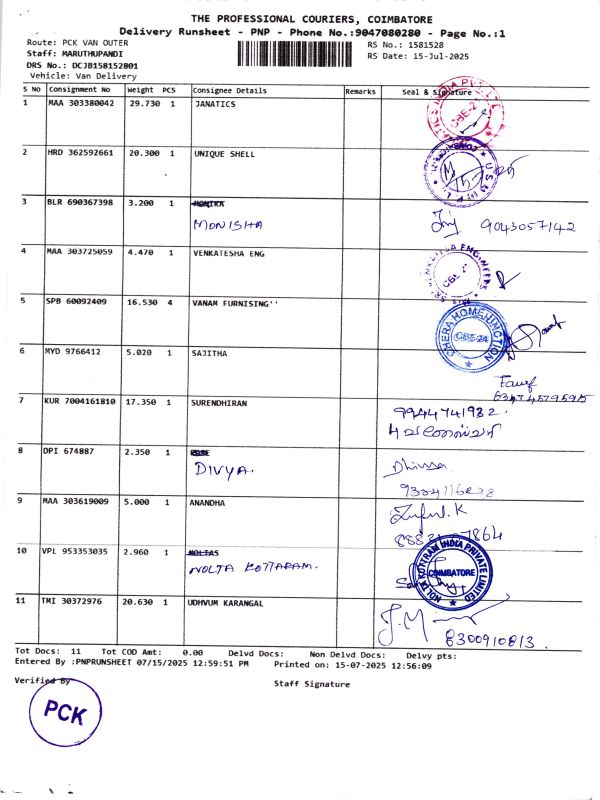 THE PROFESSIONAL COURIERS, COIMBATORE
Delivery Runsheet - PNP - Phone No.:9047080280 - Page No.:1
Route: PCK VAN OUTER
RS No.: 1581528
Staff: MARUTHUPANDI
RS Date: 15-Jul-2025
DRS No.: DCJB158152801
Vehicle: Van Delivery
S No Consignment No Weight PCS Consignee Details Remarks Seal & Signature
1 MAA 303380042 29.730 1 JANATICS
CBE-21
2 HRD 362592661 20.300 1 UNIQUE SHELL
3 BLR 690367398 3.200 1 MONIKA
MONISHA 9043057142
4 MAA 303725059 4.470 1 VENKATESHA ENG
5 SPB 60092409 16.530 4 VANAM FURNISING''
CHERA HOME CBE-24
6 MYD 9766412 5.020 1 SAJITHA
7 KUR 7004161810 17.350 1 SURENDHIRAN
9944741982.
8 DPI 674887 2.350 1
DIVYA.
9 MAA 303619009 5.000 1 ANANDHA
10 VPL 953353035 2.960 1 NOLTAS
NOLTA KOTTARAM.
NOLTA KOTTRAM INDIA PRIVATE LIMITED COIMBATORE
11 TMI 30372976 20.630 1 UDHVUM KARANGAL
J.M
8300910813.
Tot Docs: 11 Tot COD Amt: 0.00 Delvd Docs: Non Delvd Docs: Delvy pts:
Entered By :PNPRUNSHEET 07/15/2025 12:59:51 PM Printed on: 15-07-2025 12:56:09
Verified By
Staff Signature
PCK